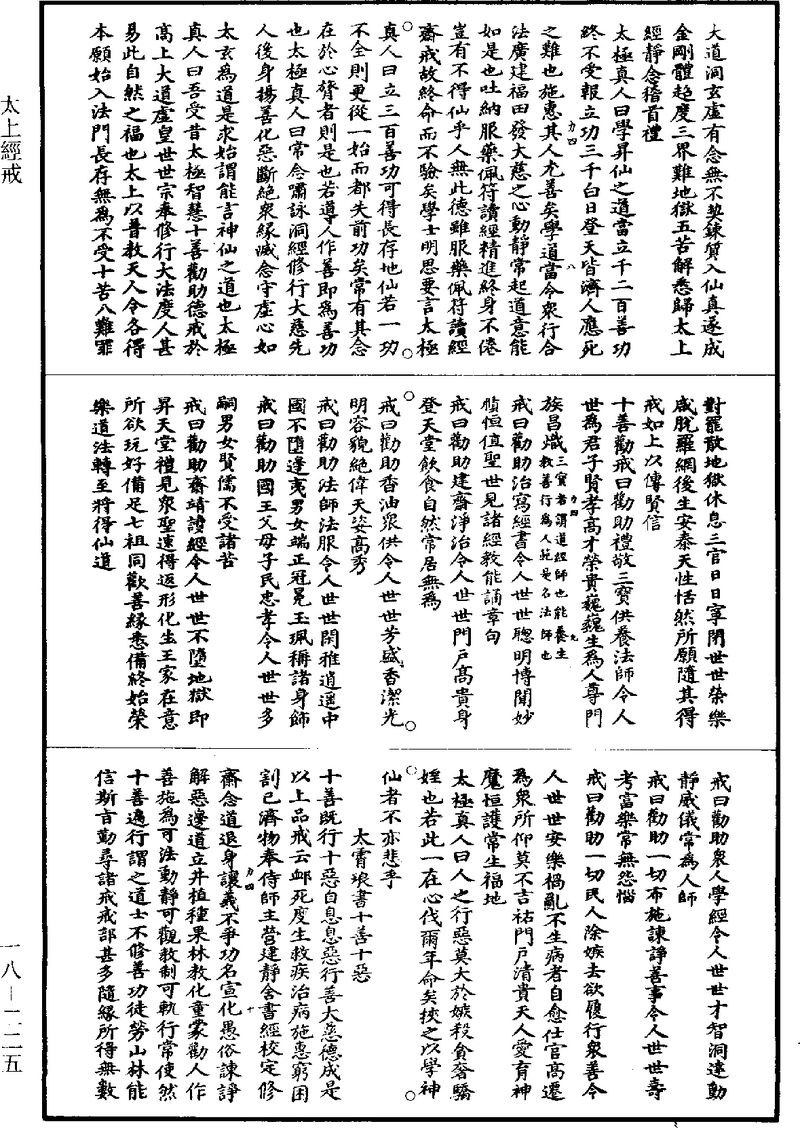 大道洞玄虛有念無不契鍊質入仙真遂成
金剛體超度三界難地獄五苦解悉歸太上
經靜念稽首禮
太極真人曰學昇仙之道當立千二百善功
終不受報立功三千白日登天皆濟人應死
之難也施惠其人尤善矣學道當令衆行合
法廣建福田發大慈之心動靜常起道意能
如是也吐納服藥佩符讀經精進終身不倦
豈有不得仙乎人無此德雖服藥佩符讀經
齋戒故終命而不驗矣學士明思要言太極
真人曰立三百善功可得長存地仙若一功
不全則更從一始而都失前功矣常有其念
在於心膂者則是也若導人作善即爲善功
也太極真人曰常念嘯詠洞經修行大慈先
人後身揚善化惡斷絕衆緣滅念守虛心如
太玄爲道是求始謂能言神仙之道也太極
真人曰吾受昔太極智慧十善勸助德戒於
高上大道虛皇世世宗奉修行大法度人甚
易此自然之福也太上以普教天人令各得
本願始入法門長存無爲不受十苦八難罪
對罷散地獄休息三官日日寧閉世世榮樂
咸脫羅網後生安泰天性恬然所願隨其得
戒如上以傳賢信
十善勸戒曰勸助禮敬三寶供養法師令人
世爲君子賢孝高才榮貴巍巍生爲人尊門
族昌熾三寶者謂道經師也能養生教善行爲人範是名法師也
戒曰勸助治寫經書令人世世聰明博聞妙
賾恒值聖世見諸經教能誦章句
戒曰勸助建齋淨治令人世世門戶高貴身
登天堂飲食自然常居無爲
戒曰勸助香油衆供令人世世芳盛香潔光
明容貌絕偉天姿高秀
戒曰勸助法師法服令人世世閑雅逍遥中
國不墮邊夷男女端正冠冕玉珮稱諸身飾
戒曰勸助國王父母子民忠孝令人世世多
嗣男女賢儒不受諸苦
戒曰勸助齋靖讀經令人世世不墮地獄即
昇天堂禮見衆聖速得返形化生王家在意
所欲玩好備足七祖同歡善緣悉備終始榮
樂道法轉至將得仙道
戒曰勸助衆人學經令人世世才智洞達動
靜威儀常爲人師
戒曰勸助一切布施諫諍善事令人世世壽
考富樂常無怨惱
戒曰勸助一切民人除嫉去欲履行衆善令
人世世安樂禍亂不生病者自愈仕官高遷
爲衆所仰莫不吉祐門戶清貴天人愛育神
魔恒護常生福地
太極真人曰人之行惡莫大於嫉殺貪奢驕
婬也若此一在心伐爾年命矣挾之以學神
仙者不亦悲乎
太霄琅書十善十惡
十善既行十惡自息息惡行善大慈德成是
以上品戒云卹死度生救疾治病施惠窮困
割己濟物奉侍師主營建靜舍書經校定修
齋念道退身讓義不爭功名宣化愚俗諫諍
解惡邊道立井植種果林教化童蒙勸人作
善施爲可法動靜可觀教制可軌行常使然
十善遍行謂之道士不修善功徒勞山林能
信斯言勤尋諸戒戒部甚多隨緣所得無數
太上經戒
一八—二二五